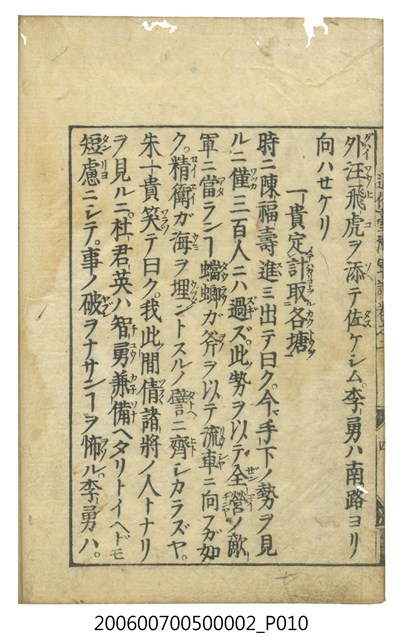 外汪飛虎ヲ添テ佐ケシム。李勇ハ南路ヨリ
向ハセケリ
一貴定計取各塘
時ニ陳福壽進ミ出テ曰ク。今手下ノ勢ヲ見
ルニ僅三百人ニハ過ズ。此勢ヲ以テ全營ノ敵
軍ニ當ランヿ蟷螂ガ斧ヲ以テ流車ニ向フガ如
ク。精衛ガ海ヲ埋ントスルノ譬ニ齊シカラズヤ。
朱一貴笑テ曰ク。我此間倩諸將ノ人トナリ
ヲ見ルニ。杜君英ハ智勇兼備ヘタリトイヘドモ
短慮ニシテ。事ノ破ヲナサンヿヲ怖ル。李勇ハ。
四
200600700500002_P010